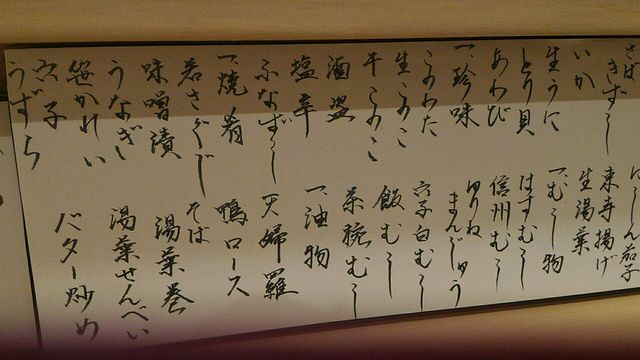 さばきずし
いか
生うに
とり貝
あわび
一、珍味
このわた
生このこ
干このこ
酒盗
塩辛
ふなずし
一、焼肴
若さぐじ
味噌漬
うなぎ
笹かれい
穴子
うずら
にしん茄子
東寺揚げ
生湯葉
一、むし物
はすむし
信州むし
ゆりねまんじゅう
穴子白むし
飯むし
茶碗むし
一、油物
天婦羅
鴨ロース
そば
湯葉巻
湯葉せんべい
バター炒め